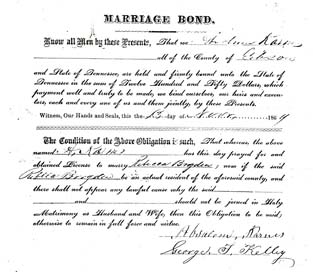 MARRIAGE BOND.
Know all Men by these Presents, That we
all of the County of Gibson
and State of Tennessee, are held and firmly bound unto the State of
Tennessee in the sum of Twelve Hundred and Fifty Dollars, which
payment well and truly to be made, we bind ourselves, our heirs and execu-
tors, each and every one of us and them jointly, by these Presents.
Witness, Our Hands and Seals, this day of 186
The Condition of the Above Obligation is such, That whereas, the above
named has this day prayed for and
obtained License to marry Rebecca Bogden now if the said
Bogden be an actual resident of the aforesaid county, and
there shall not appear any lawful cause why the said
and should not be joined in Holy
Matrimony as Husband and Wife, then this Obligation to be said;
otherwise to remain in full force and virtue.
Absalom Karnes
George T. Kelley